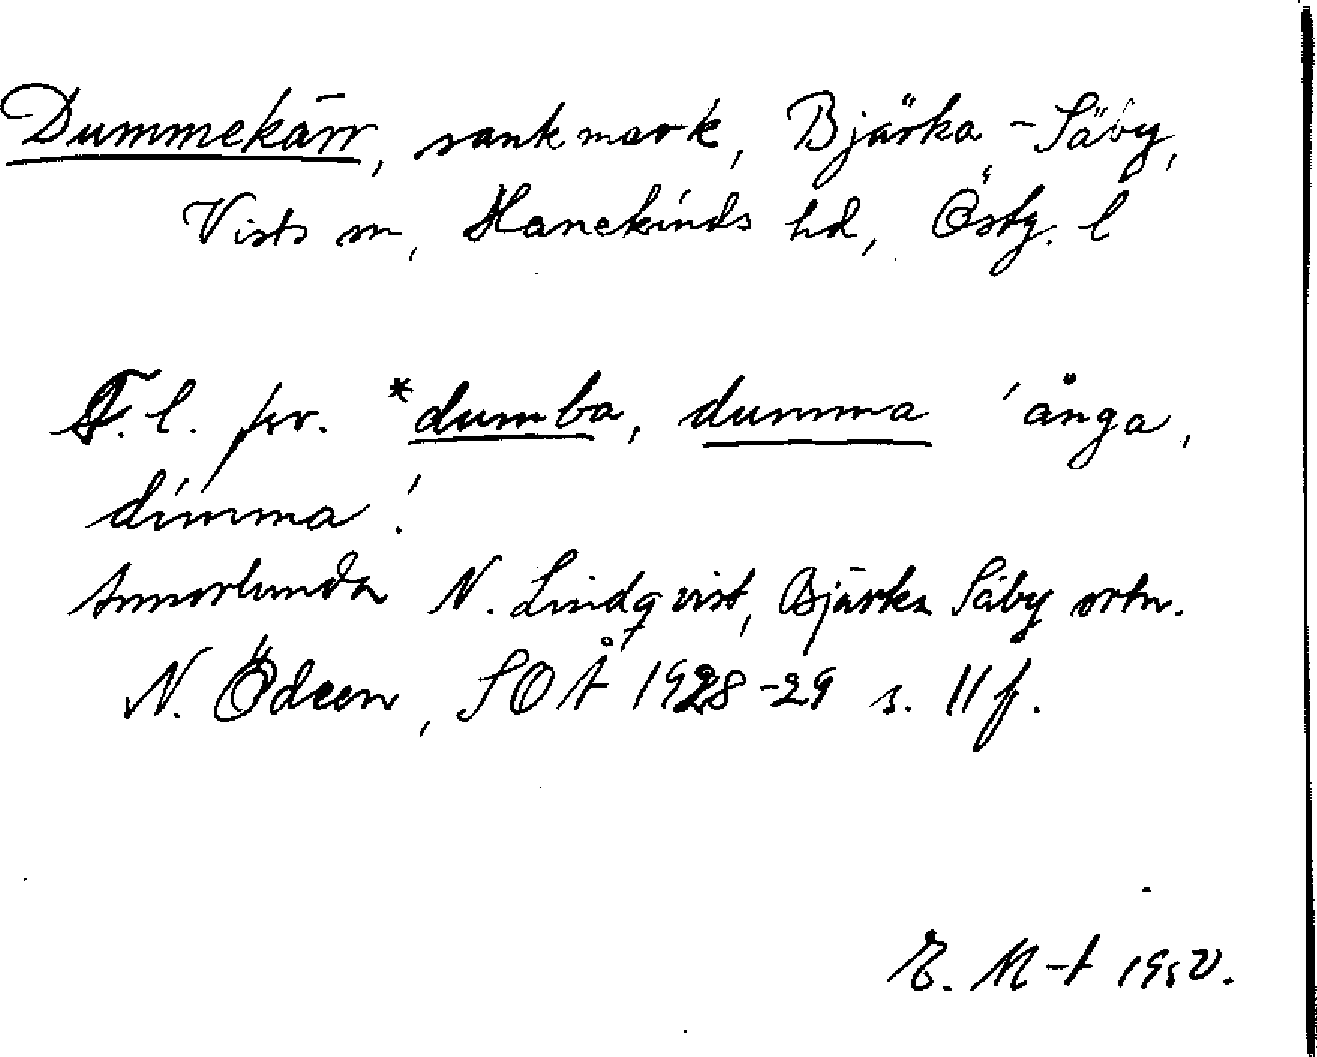 Dummekärr, sankmark, Bjärka-Säby,
Vists sn, Hanekinds hd, Östg. l
F.l. fsv. *dumba, dumma 'ånga,
dimma'.
Annorlunda N. Lindqvist, Bjärka Säby ortn.
N. Ödeen, SOÅ 1928-29 s. 11 f.
E. M-t 1950.